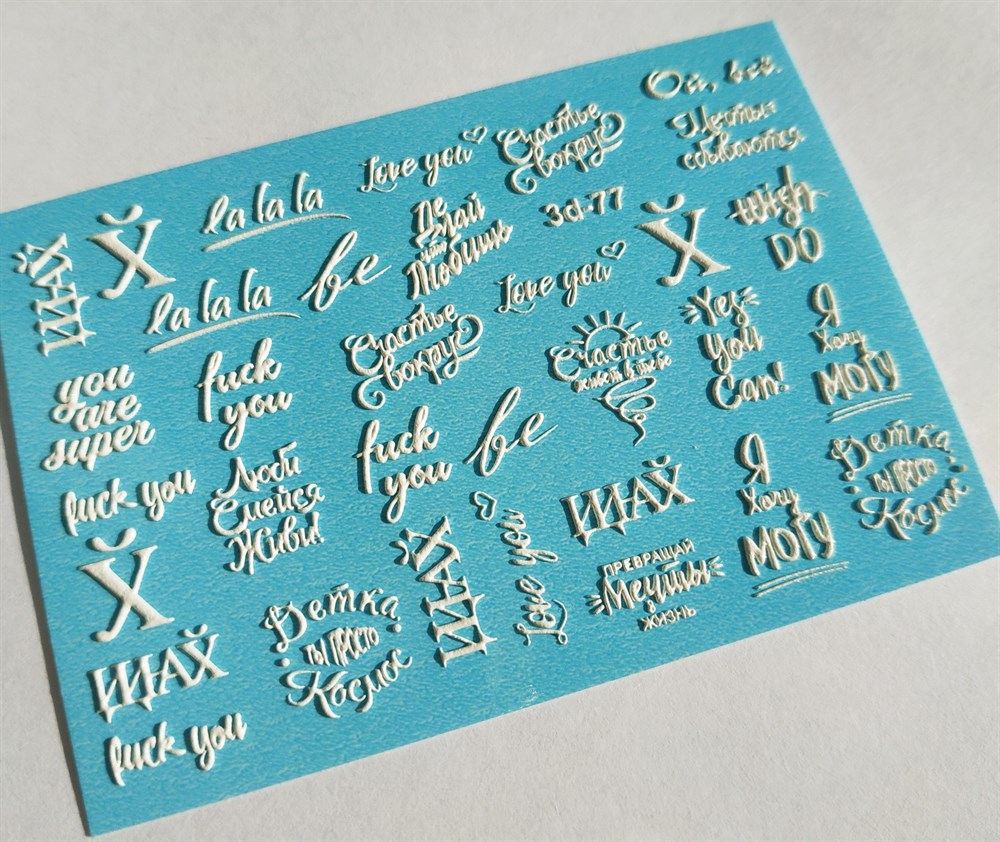 Ой, всё.
Мечты
сбываются
Love you
Счастье
вокруг
la la la
Де
лай
что
Любишь
3d-77
Х̆
wish
DO
ЩАХ̆
Х̆
la la la
be
Love you
Счастье
вокруг
Счастье
живёт в тебе
Yes
you
Can!
Я
Хочу
МОГУ
you
are
super
fuck
you
fuck
you
be
Детка
ты просто
Космос
fuck you
Люби
Смейся
Живи!
ЩАХ̆
Я
Хочу
МОГУ
Х̆
ЩАХ̆
Love you
ПРЕВРАЩАЙ
Мечты
в
ЖИЗНЬ
Детка
ты просто
Космос
ЩАХ̆
fuck you